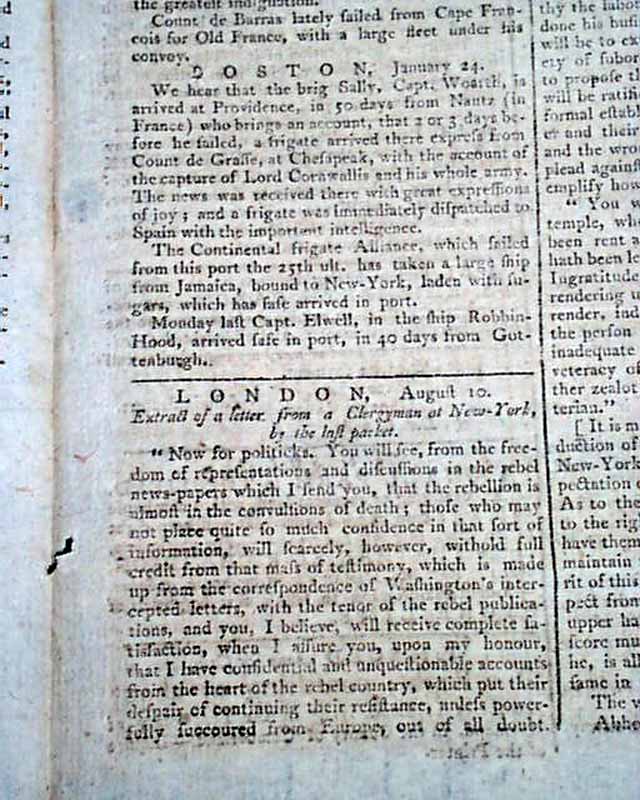 the greatest indignation.
Count de Barras lately sailed from Cape Fran-
cois for Old France, with a large fleet under his
convoy.
BOSTON, January 24.
We hear that the brig Sally, Capt. is
arrived at Providence, in 50 days from Nantz (in
France) who brings an account, that 2 or 3 days be-
fore he sailed, a frigate arrived there express from
Count de Grasse, at Chesapeak, with the account of
the capture of Lord Cornwallis and his whole army.
The news was received there with great expressions
of joy; and a frigate was immediately dispatched to
Spain with the important intelligence.
The Continental frigate Alliance, which sailed
from this port the 25th ult. has taken a large ship
from Jamaica, bound to New-York, laden with su-
gars, which has safe arrived in port.
Monday last Capt. Elwell, in the ship Robbin-
Hood, arrived safe in port, in 40 days from Got-
tenburgh.
LONDON, August 10.
Extract of a letter from a Clergyman at New-York,
by the last packet.
"Now for politicks. You will see, from the free-
dom of representations and discussions in the rebel
news-papers which I send you, that the rebellion is
almost in the convulsions of death; those who may
not place quite so much confidence in that sort of
information, will scarcely, however, withold full
credit from that mass of testimony, which is made
up from the correspondence of Washington's inter-
cepted letters, with the tenor of the rebel publica-
tions, and you, I believe, will receive complete sa-
tisfaction, when I assure you, upon my honour,
that I have confidential and unquestionable accounts
from the heart of the rebel country, which put their
despair of continuing their resistance, unless power-
fully succoured from Europe, out of all doubt.
thy the labo
done his
will be to ex
ety of subor
to propose th
will be ratifi
formal estab
er and their
and the wro
plead against
emplify how
"You w
temple, wh
been rent
hath been le
Ingratitude
rendering
render, ind
the person
inadequate
veteracy of
ther zealot
terian."
[It is m
duction of
New-York
pectation
As to the
to the righ
have them
maintain
rit of this
pect from
upper ha
score mu
he, is all
same in
The w
Abbe